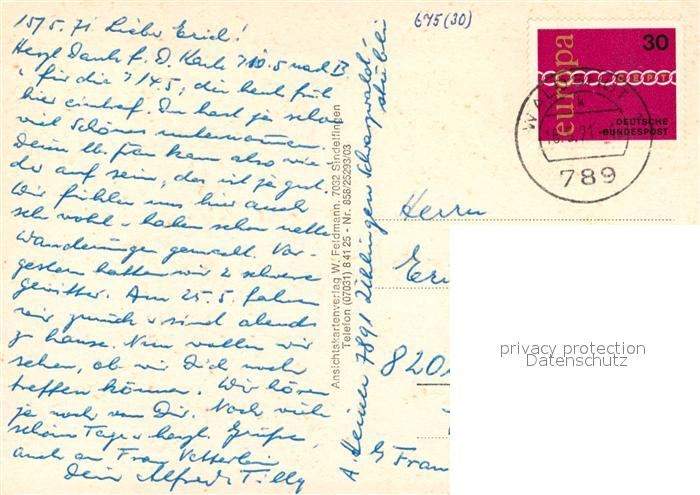 15/5.71 Lieber Erich!
Herzl. Dank f. D. Karte v 10.5 nach B
u für die v 14.5, die heute früh
hier eintraf. Du hast ja schon
viel Schönes unternommen.
Deine lb. Frau kann also wie-
der auf sein, das ist ja gut.
Wir fühlen uns hier auch
sehr wohl u. haben schon nette
Wanderungen gemacht. Vor-
gestern hatten wir 2 schwere
Gewitter. Am 25.5. fahren
wir zurück u sind abends
z hause. Nun wollen wir
sehen, ob wir Dich noch
treffen können. Wir hören
ja noch von Dir. Noch viele
schöne Tage u herzl. Grüße,
auch an Frau Vetterlein
Dein Alfred u Tilly
Ansichtskartenverlag W. Feldmann, 7032 Sindelfingen
Telefon (07031) 8 41 25 - Nr. 858/25293/03
7891 Schwarzwald
stübli
675 (30)
europa
30
CEPT
DEUTSCHE
BUNDESPOST
789
Herrn
820
privacy protection
Datenschutz